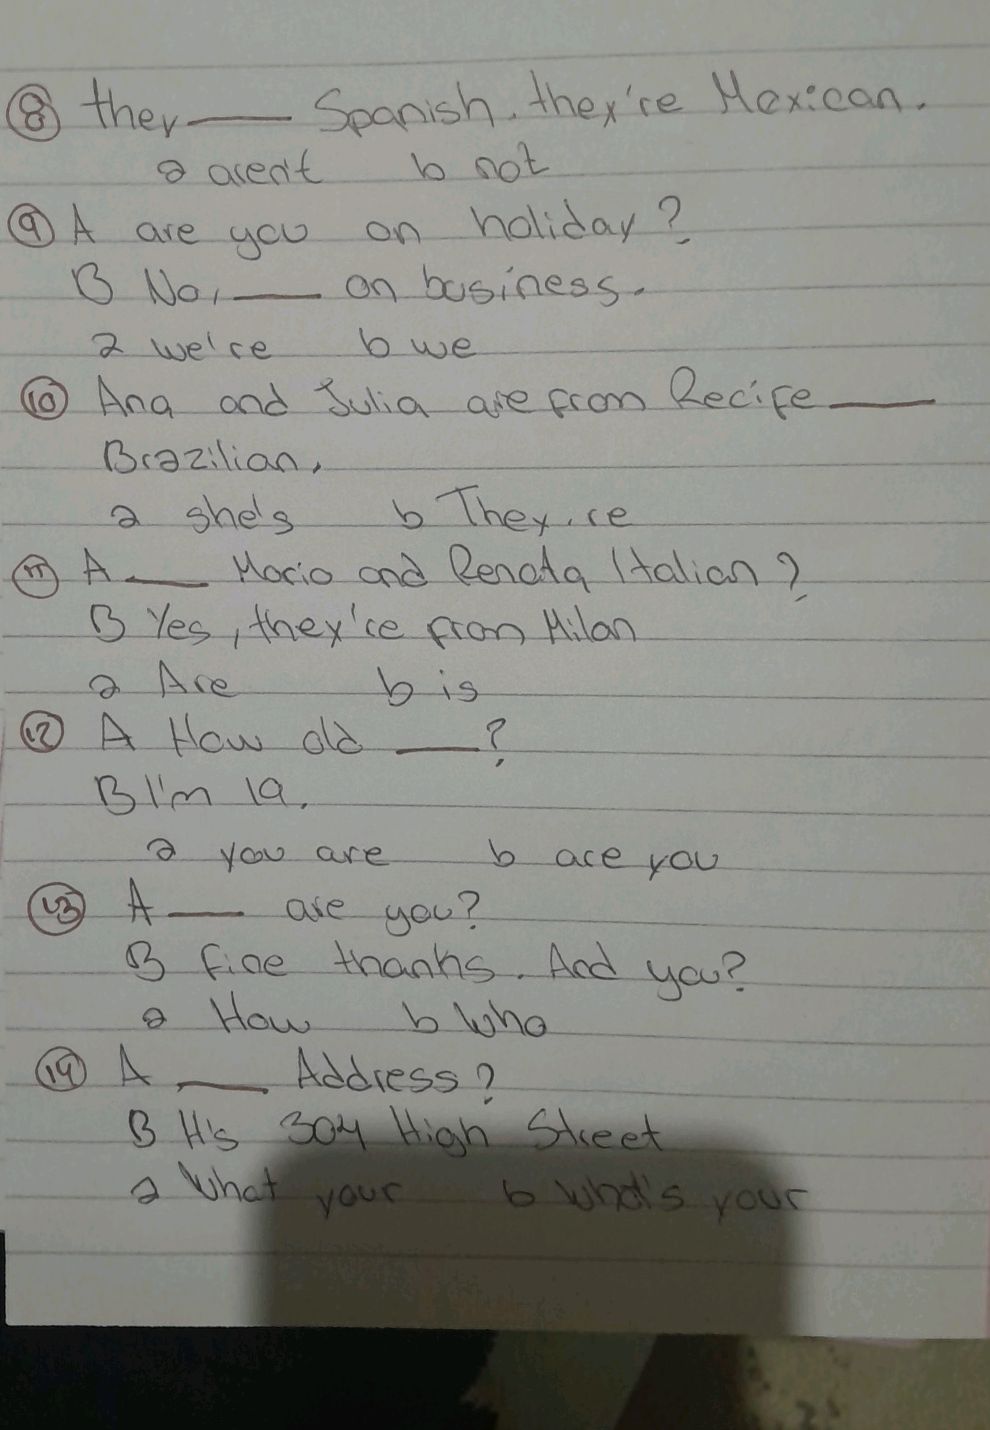 ⑧ they ____ Spanish. they're Mexican.
a aren't b not
⑨ A are you on holiday?
B No, ____ on business.
a we're b we
⑩ Ana and Julia are from Recife ____
Brazilian.
a she's b They're
⑪ A ____ Mario and Renata Italian?
B Yes, they're from Milan
a Are b is
⑫ A How old ____?
B I'm 19.
a you are b are you
⑬ A ____ are you?
B fine thanks. And you?
a How b Who
⑭ A ____ Address?
B It's 304 High Street
a What your b What's your